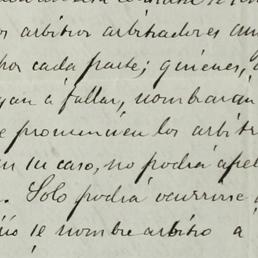 os arbitros arbitradores
por cada parte; quienes,
á fallar, nombrarán
e pronuncien los
su caso, no podrá
. Solo podrá ocurrirse
se nombre arbitro á